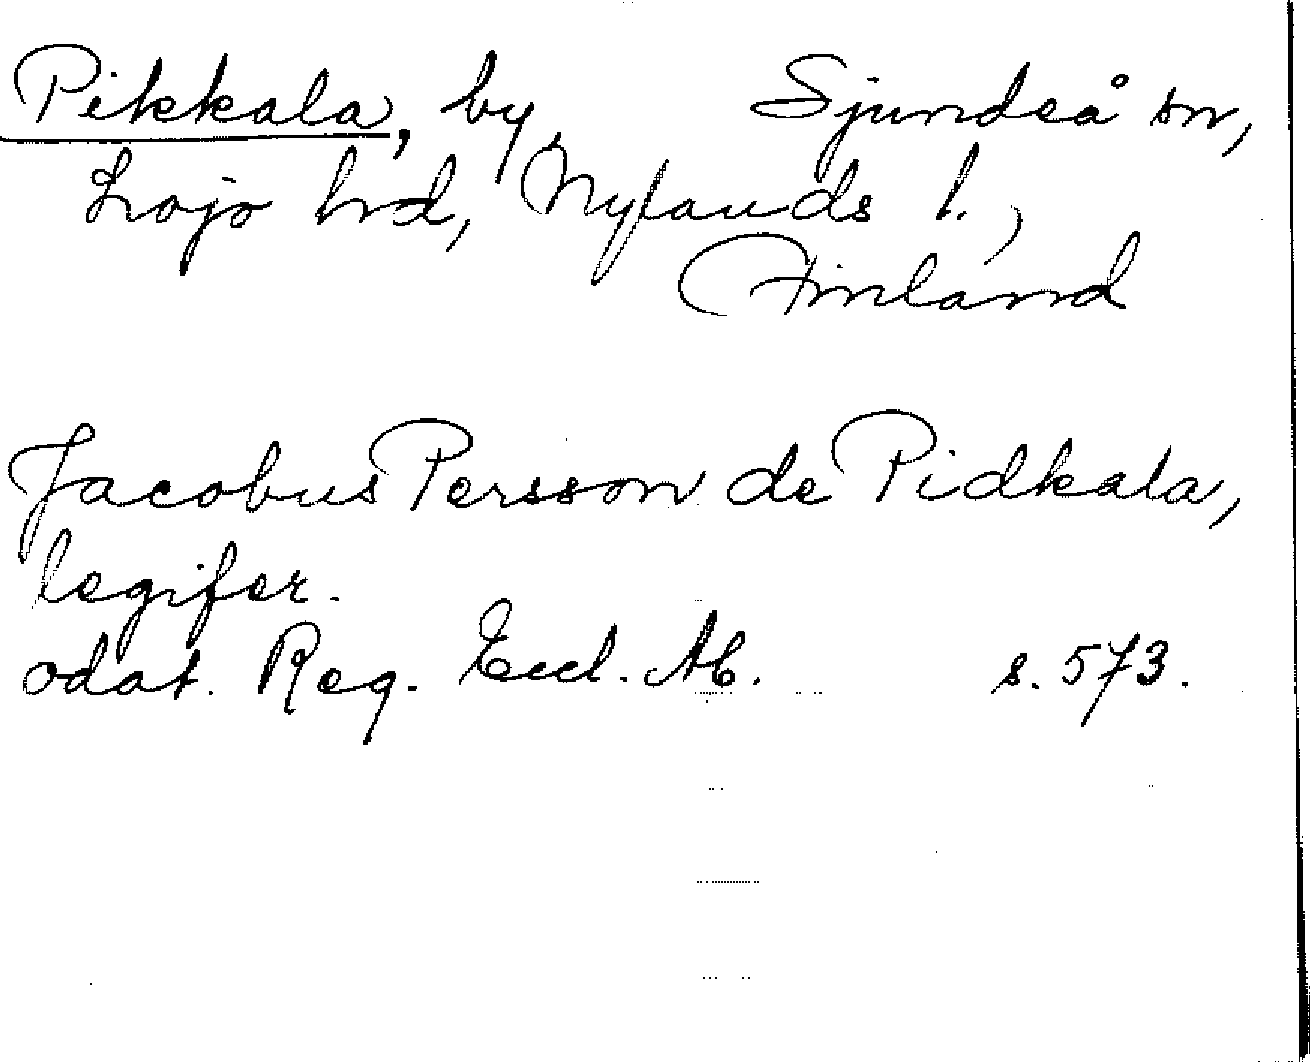 Pikkala, by, Sjundeå sn,
Lojo hrd, Nylands l.,
Finland
Jacobus Persson de Pidkala,
legifer.
odat. Reg. Eccl. Ab. s. 573.